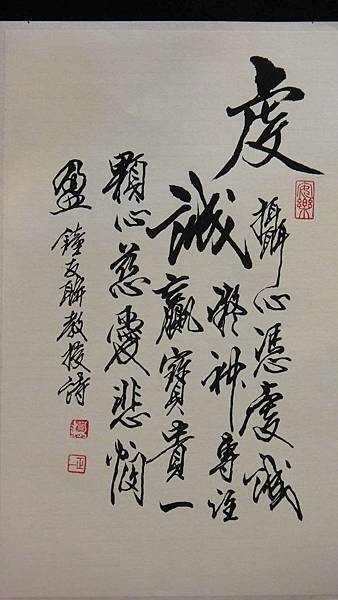 虔誠
攝心憑虔誠
凝神專注
贏寶貴一
顆心慈愛悲憫
盈
鐘友聯教授詩